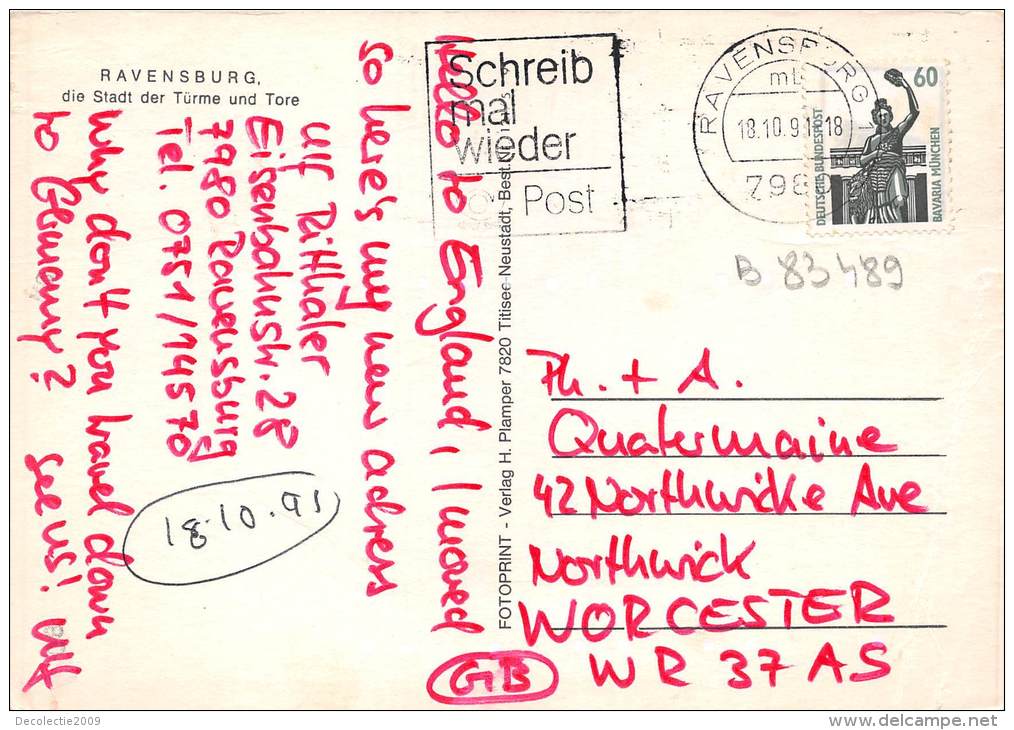 RAVENSBURG,
die Stadt der Türme und Tore
Hello to England, I moved
so here's my new adress
Ulf Ritthaler
Eisenbahnstr. 28
7980 Ravensburg
Tel. 0751/14570
Why don't you travel down
to Germany? See us! Ulf
18.10.91
Schreib
mal
wieder
Post
RAVENSBURG
mb
18.10.91-18
798
60
DEUTSCHE BUNDESPOST
BAVARIA MÜNCHEN
B 83489
FOTOPRINT - Verlag H. Plamper 7820 Titisee-Neustadt, Best
Ph. + A.
Quatermaine
42 Northwicke Ave
Northwick
WORCESTER
GB WR 37AS
Decolectie2009
www.delcampe.net